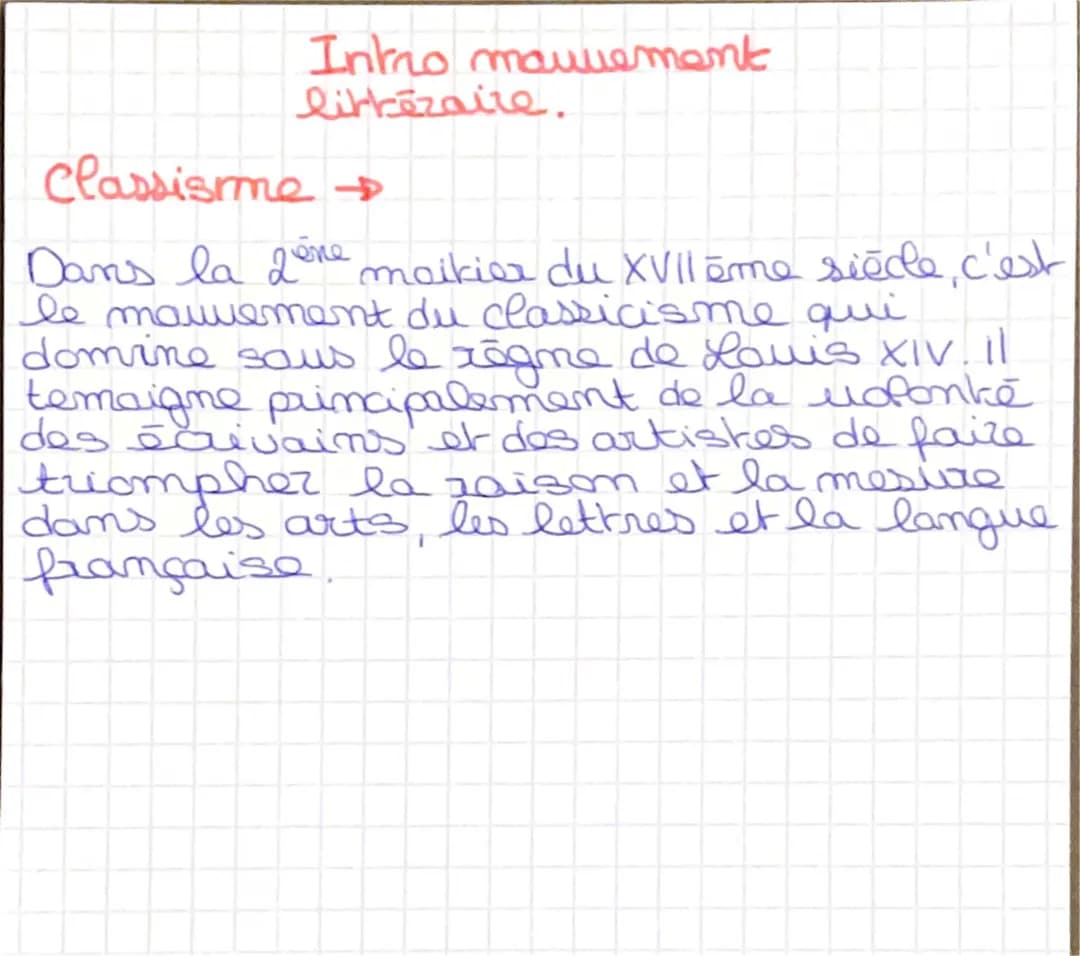 Intro mouvement
littéraire.
Classisme →
Dans la 2ème moitier du XVIIème siècle, c'est
le mouvement du classicisme qui
domine sous le règne de Louis XIV. Il
temoigne principalement de la volonté
des écrivains et des artistes de faire
triompher la raison et la mesure
dans les arts, les lettres et la langue
française.